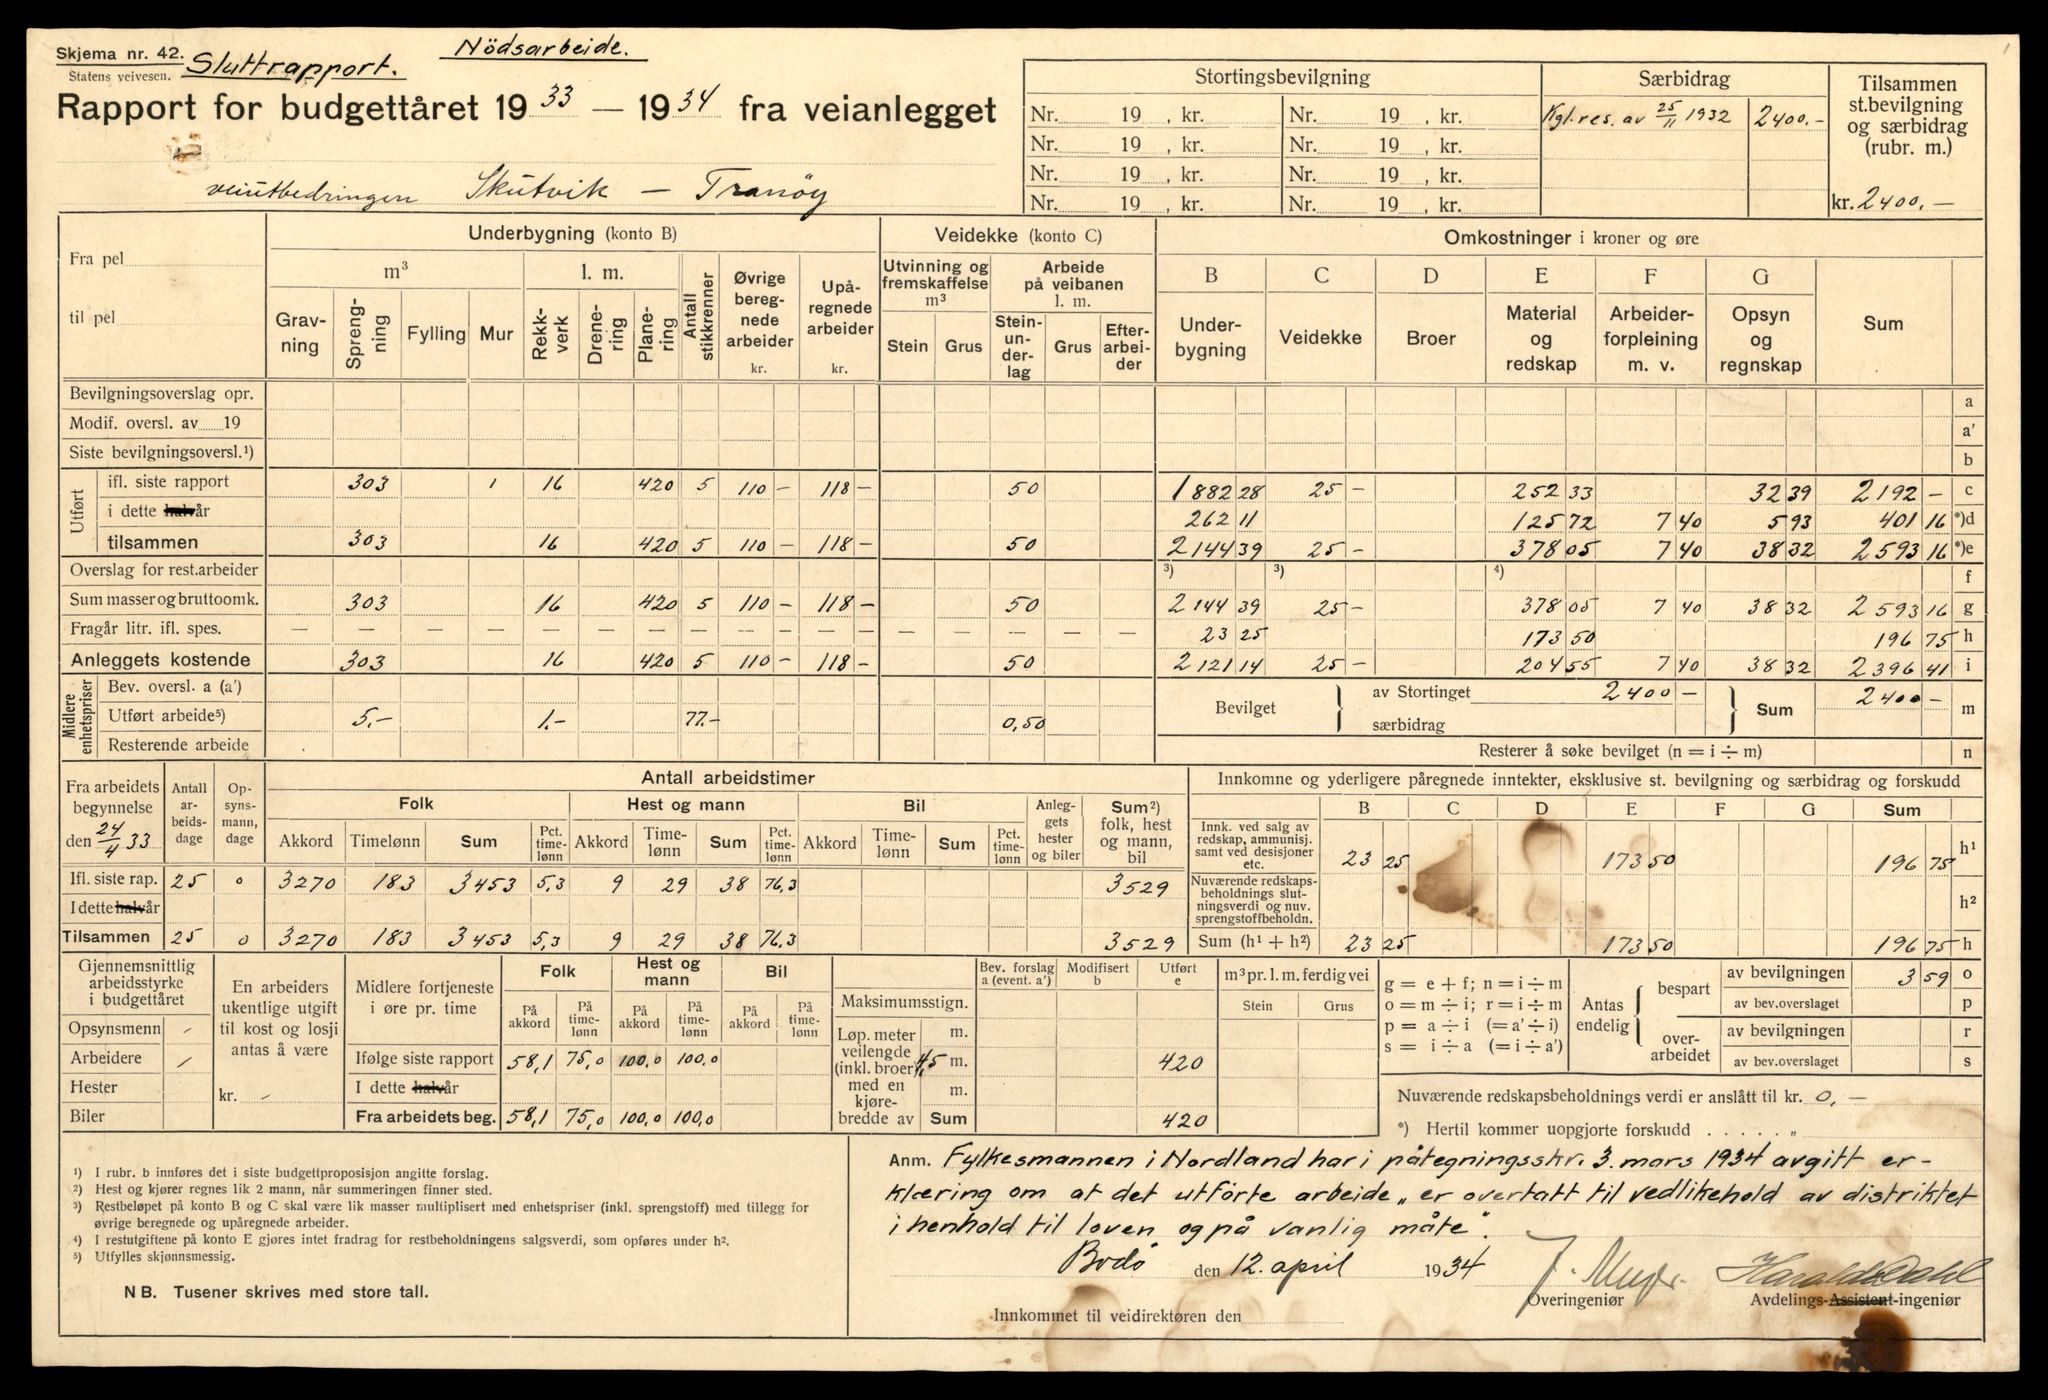 Skjema nr. 42. Sluttrapport. Nödsarbeide.
Statens veivesen.
Rapport for budgettåret 1933 — 1934 fra veianlegget
veiutbedringen Skutvik — Tranöy
Stortingsbevilgning
Nr. 19 , kr. Nr. 19 , kr.
Nr. 19 , kr. Nr. 19 , kr.
Nr. 19 , kr. Nr. 19 , kr.
Nr. 19 , kr. Nr. 19 , kr.
Særbidrag
Kgl. res. av 25/11 1932 2400.-
Tilsammen
st.bevilgning
og særbidrag
(rubr. m.)
kr. 2400.-
Fra pel
til pel
Underbygning (konto B)
m³ l. m.
Gravning Sprengning Fylling Mur Rekkverk Drenering Planering Antall stikkrenner Øvrige beregnede arbeider kr. Upåregnede arbeider kr.
Veidekke (konto C)
Utvinning og fremskaffelse m³ Arbeide på veibanen l. m.
Stein Grus Steinunderlag Grus Efterarbeider
Omkostninger i kroner og øre
B C D E F G
Underbygning Veidekke Broer Material og redskap Arbeiderforpleining m. v. Opsyn og regnskap Sum
Bevilgningsoverslag opr. a
Modif. oversl. av 19 a'
Siste bevilgningsoversl.¹) b
Utført
ifl. siste rapport 303 1 16 420 5 110 — 118 — 50 1882 28 25 — 252 33 32 39 2192 — c
i dette halvår 262 11 125 72 7 40 5 93 401 16 *)d
tilsammen 303 16 420 5 110 — 118 — 50 2144 39 25 — 378 05 7 40 38 32 2593 16 *)e
Overslag for rest.arbeider ³) ³) ⁴) f
Sum masser og bruttoomk. 303 16 420 5 110 — 118 — 50 2144 39 25 — 378 05 7 40 38 32 2593 16 g
Fragår litr. ifl. spes. — — — — — — — — — — — — — — — 23 25 173 50 196 75 h
Anleggets kostende 303 16 420 5 110 — 118 — 50 2121 14 25 — 204 55 7 40 38 32 2396 41 i
Midlere enhetspriser
Bev. oversl. a (a')
Utført arbeide⁵) 5.- 1.- 77.- 0,50
Resterende arbeide
Bevilget av Stortinget 2400 — Sum 2400 — m
særbidrag
Resterer å søke bevilget (n = i ÷ m) n
Fra arbeidets begynnelse den 24/4 33
Antall arbeidsdage Opsynsmann, dage
Antall arbeidstimer
Folk Hest og mann Bil Anleggets hester og biler Sum²) folk, hest og mann, bil
Akkord Timelønn Sum Pct. timelønn Akkord Timelønn Sum Pct. timelønn Akkord Timelønn Sum Pct. timelønn
Ifl. siste rap. 25 0 3270 183 3453 5,3 9 29 38 76,3 3529
I dette halvår
Tilsammen 25 0 3270 183 3453 5,3 9 29 38 76,3 3529
Innkomne og yderligere påregnede inntekter, eksklusive st. bevilgning og særbidrag og forskudd
B C D E F G Sum
Innk. ved salg av redskap, ammunisj. samt ved desisjoner etc. 23 25 173 50 196 75 h¹
Nuværende redskapsbeholdnings slutningsverdi og nuv. sprengstoffbeholdn. h²
Sum (h¹ + h²) 23 25 173 50 196 75 h
Gjennemsnittlig arbeidsstyrke i budgettåret
Opsynsmenn
Arbeidere
Hester
Biler
En arbeiders ukentlige utgift til kost og losji antas å være
kr. -
Midlere fortjeneste i øre pr. time
Folk Hest og mann Bil
På akkord På timelønn På akkord På timelønn På akkord På timelønn
Ifølge siste rapport 58,1 75,0 100,0 100,0
I dette halvår
Fra arbeidets beg. 58,1 75,0 100,0 100,0
Bev. forslag a (event. a') Modifisert b Utført e
Maksimumsstign.
Løp. meter veilengde (inkl. broer) med en kjørebredde av
m.
4,5 m. 420
m.
Sum 420
m³ pr. l. m. ferdig vei
Stein Grus
g = e + f; n = i ÷ m
o = m ÷ i; r = i ÷ m
p = a ÷ i (= a' ÷ i)
s = i ÷ a (= i ÷ a')
Antas endelig
bespart av bevilgningen 3 59 o
av bev.overslaget p
overarbeidet av bevilgningen r
av bev.overslaget s
Nuværende redskapsbeholdnings verdi er anslått til kr. 0,—
*) Hertil kommer uopgjorte forskudd . . . . . „
¹) I rubr. b innføres det i siste budgettproposisjon angitte forslag.
²) Hest og kjører regnes lik 2 mann, når summeringen finner sted.
³) Restbeløpet på konto B og C skal være lik masser multiplisert med enhetspriser (inkl. sprengstoff) med tillegg for
øvrige beregnede og upåregnede arbeider.
⁴) I restutgiftene på konto E gjøres intet fradrag for restbeholdningens salgsverdi, som opføres under h².
⁵) Utfylles skjønnsmessig.
NB. Tusener skrives med store tall.
Anm. Fylkesmannen i Nordland har i påtegningsskr. 3. mars 1934 avgitt er-
klæring om at det utförte arbeide „er overtatt til vedlikehold av distriktet
i henhold til loven og på vanlig måte".
Bodö den 12. april 1934
Harald Dahl
Overingeniør Avdelings-Assistent-ingeniør
Innkommet til veidirektören den